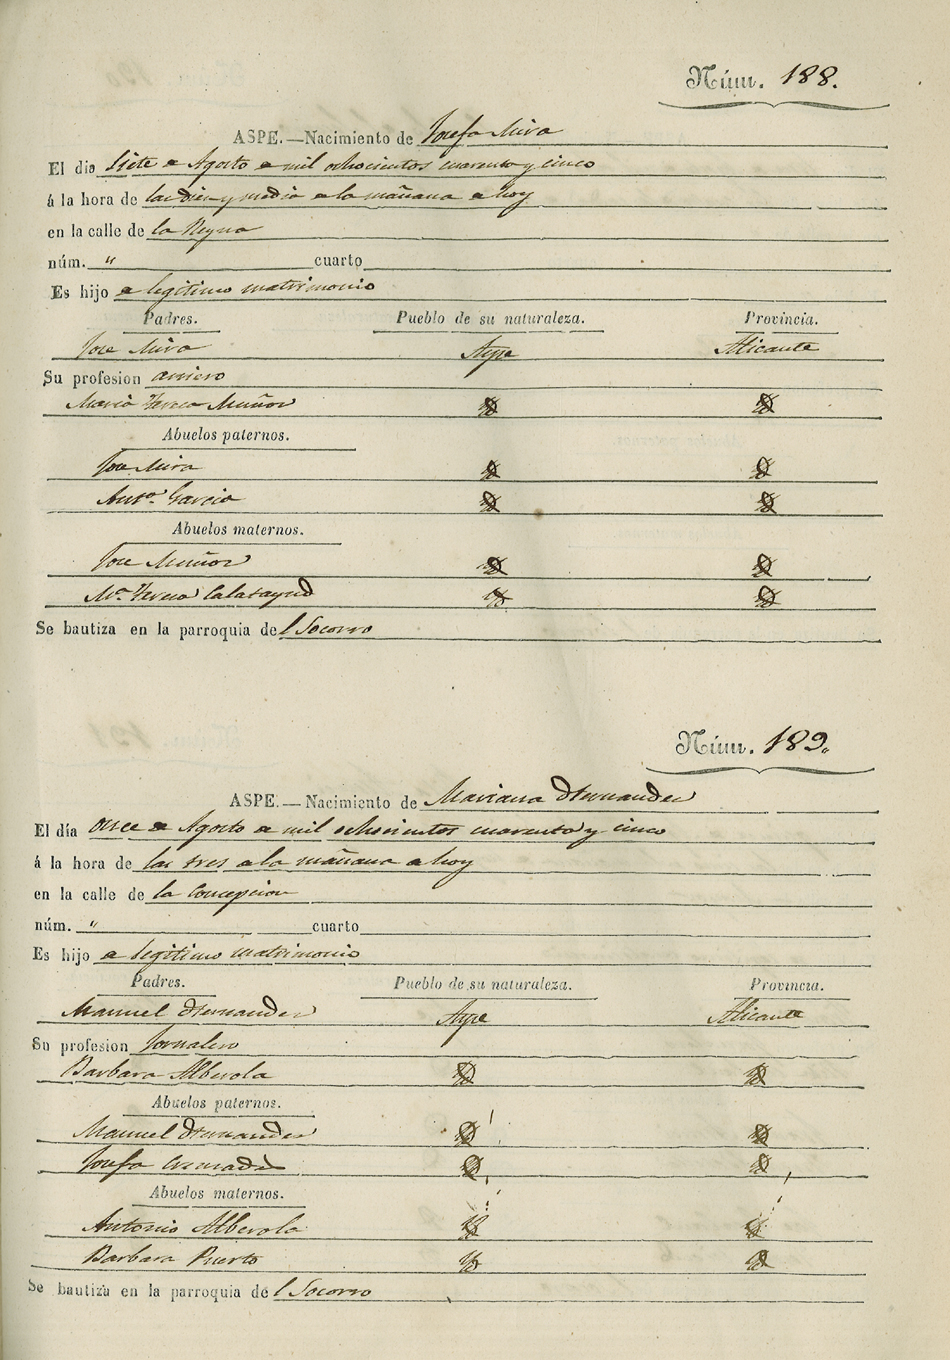 Núm. 188.
ASPE.—Nacimiento de Josefa Mira
El día Siete de Agosto de mil ochocientos cuarenta y cinco
á la hora de las diez y media de la mañana de hoy
en la calle de la Reyna
núm. " cuarto
Es hijo de legitimo matrimonio
Padres. Pueblo de su naturaleza. Provincia.
Jose Mira Aspe Alicante
Su profesion arriero
Maria Teresa Muñoz
Abuelos paternos.
Jose Mira
Antª. Garcia
Abuelos maternos.
Jose Muñoz
Mª. Teresa Calatayud
Se bautiza en la parroquia del Socorro
Núm. 189.
ASPE.—Nacimiento de Mariana Hernandez
El día once de Agosto de mil ochocientos cuarenta y cinco
á la hora de las tres de la mañana de hoy
en la calle de la Concepcion
núm. " cuarto
Es hijo de legitimo matrimonio
Padres. Pueblo de su naturaleza. Provincia.
Manuel Hernandez Aspe Alicante
Su profesion Jornalero
Barbara Alberola
Abuelos paternos.
Manuel Hernandez
Josefa
Abuelos maternos.
Antonio Alberola
Barbara Puerto
Se bautiza en la parroquia del Socorro